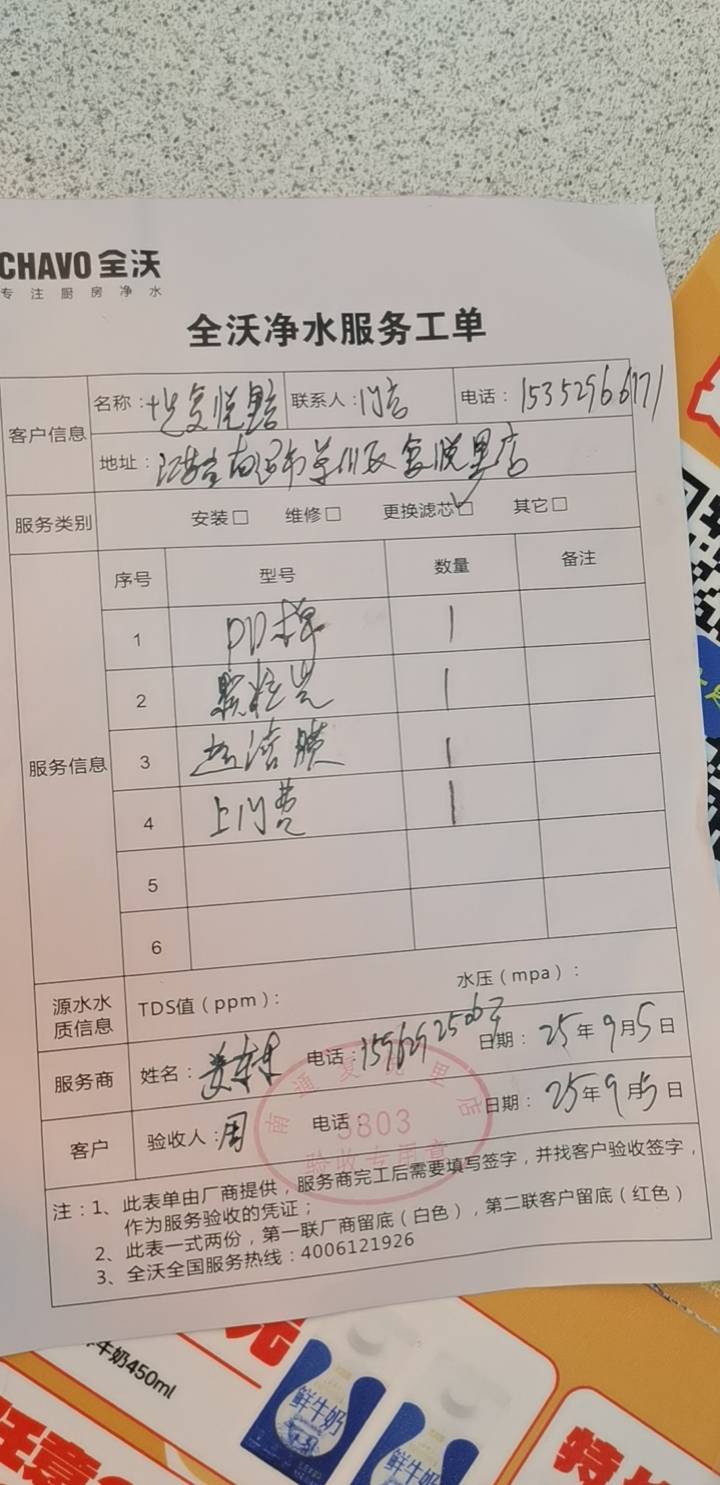 CHAVO 全沃
专注厨房净水
全沃净水服务工单
客户信息 名称: 悦里店 联系人: 门店 电话: 15352966171
地址: 江苏省南通市崇川区 悦里店
服务类别 安装□ 维修□ 更换滤芯☑ 其它□
服务信息 序号 型号 数量 备注
1 PP棉 1
2 颗粒炭 1
3 膜 1
4 上门费 1
5
6
源水水质信息 TDS值(ppm): 水压(mpa):
服务商 姓名: 电话: 日期: 25年9月5日
客户 验收人: 周 电话: 日期: 25年9月5日
南通 里店
3803
验收专用章
注:1、此表单由厂商提供,服务商完工后需要填写签字,并找客户验收签字,
作为服务验收的凭证;
2、此表一式两份,第一联厂商留底(白色),第二联客户留底(红色)
3、全沃全国服务热线:4006121926
牛奶450ml
鲜牛奶
鲜牛奶
任意
特